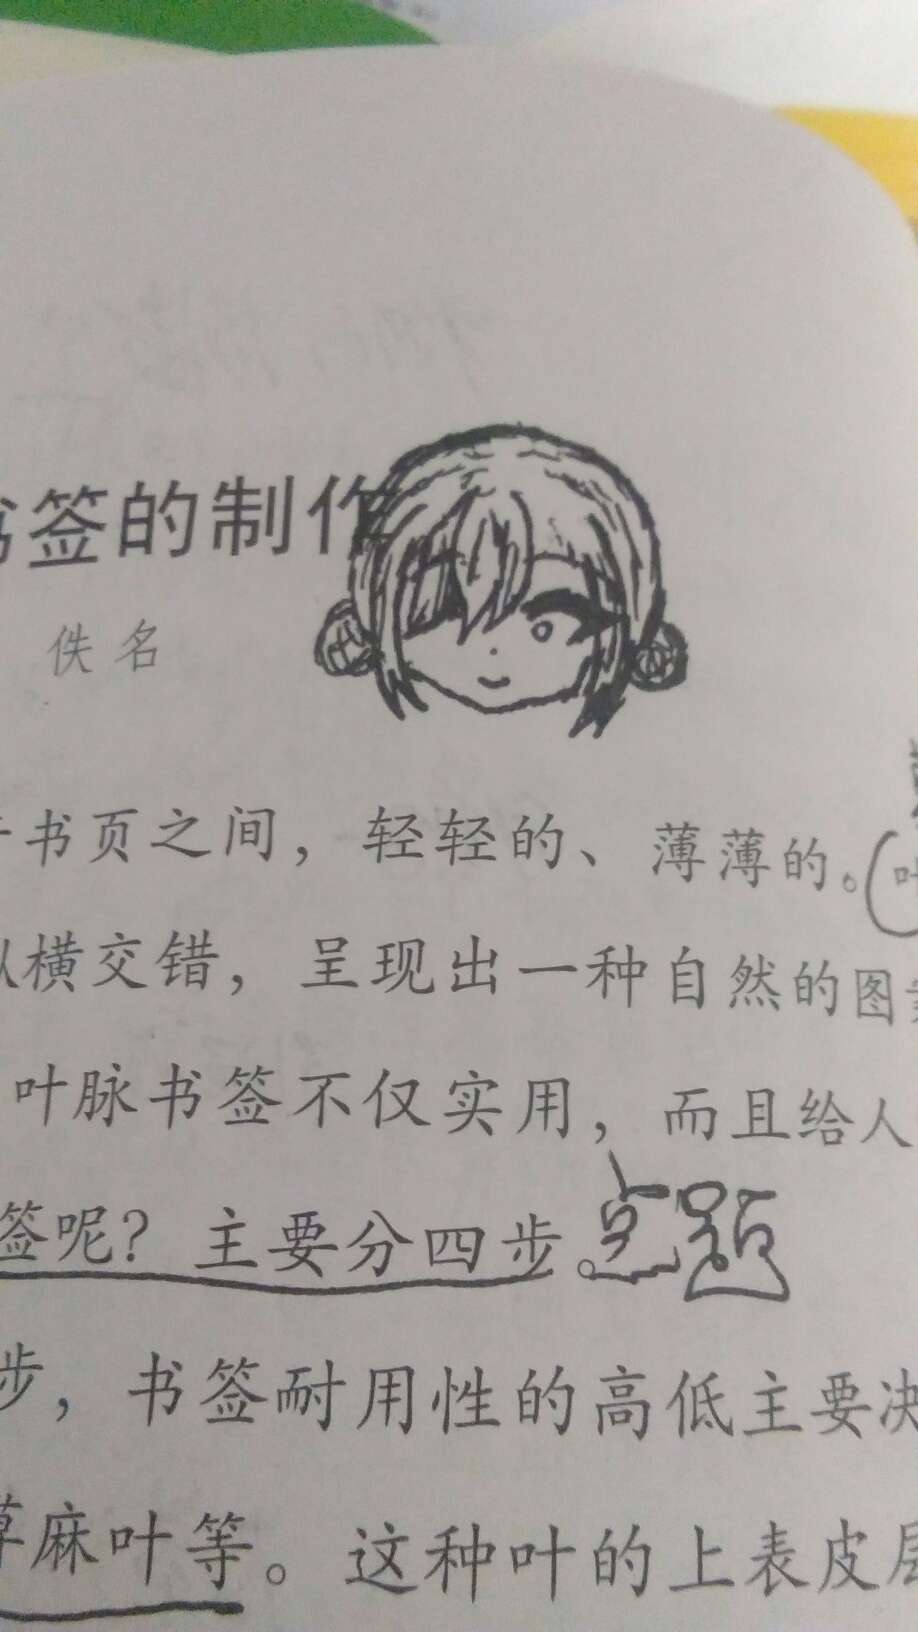 书签的制作
佚名
书页之间，轻轻的、薄薄的。
横交错，呈现出一种自然的图案
叶脉书签不仅实用，而且给人
签呢？主要分四步。主题
步，书签耐用性的高低主要决
麻叶等。这种叶的上表皮层